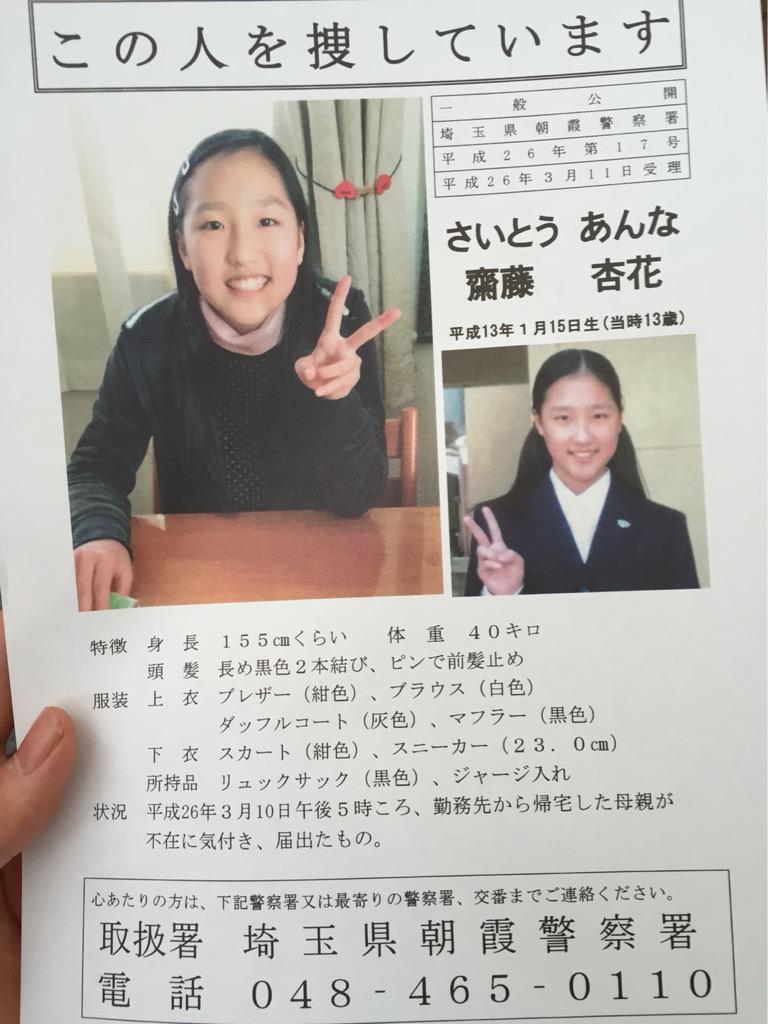 この人を捜しています
一般公開
埼玉県朝霞警察署
平成26年第17号
平成26年3月11日受理
さいとう あんな
齋藤 杏花
平成13年1月15日生(当時13歳)
特徴 身長 155cmくらい 体重 40キロ
頭髪 長め黒色2本結び、ピンで前髪止め
服装 上衣 ブレザー(紺色)、ブラウス(白色)
ダッフルコート(灰色)、マフラー(黒色)
下衣 スカート(紺色)、スニーカー(23.0cm)
所持品 リュックサック(黒色)、ジャージ入れ
状況 平成26年3月10日午後5時ころ、勤務先から帰宅した母親が
不在に気付き、届出たもの。
心あたりの方は、下記警察署又は最寄りの警察署、交番までご連絡ください。
取扱署 埼玉県朝霞警察署
電話 048-465-0110